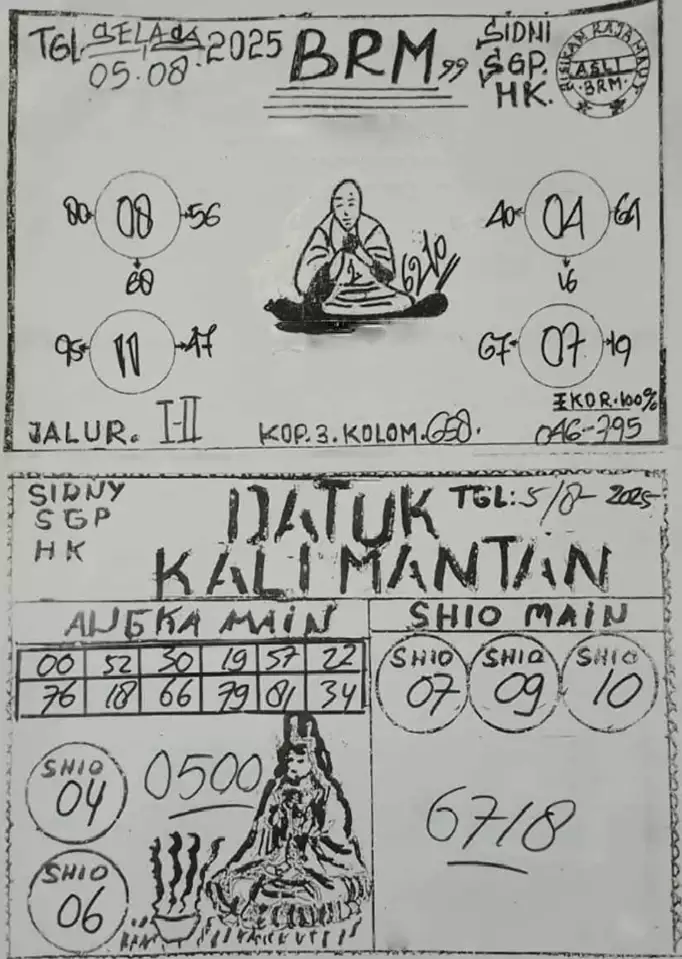 TGL. SELASA 2025
05.08.
BRM 99
SIDNI
SGP.
HK.
BISIKAN RAJA MAUT
ASLI
BRM.
80 08 56
68
40 04 64
16
6210
95 11 47
67 07 19
EKOR.100%
JALUR. I-II
KOP.3.KOLOM.658.
046-795
SIDNY
SGP
HK
DATUK
KALIMANTAN
TGL: 5/8-2025
ANGKA MAIN
00 52 30 19 57 22
76 18 66 79 81 34
SHIO MAIN
SHIO
07
SHIO
09
SHIO
10
SHIO
04
0500
SHIO
06
6718